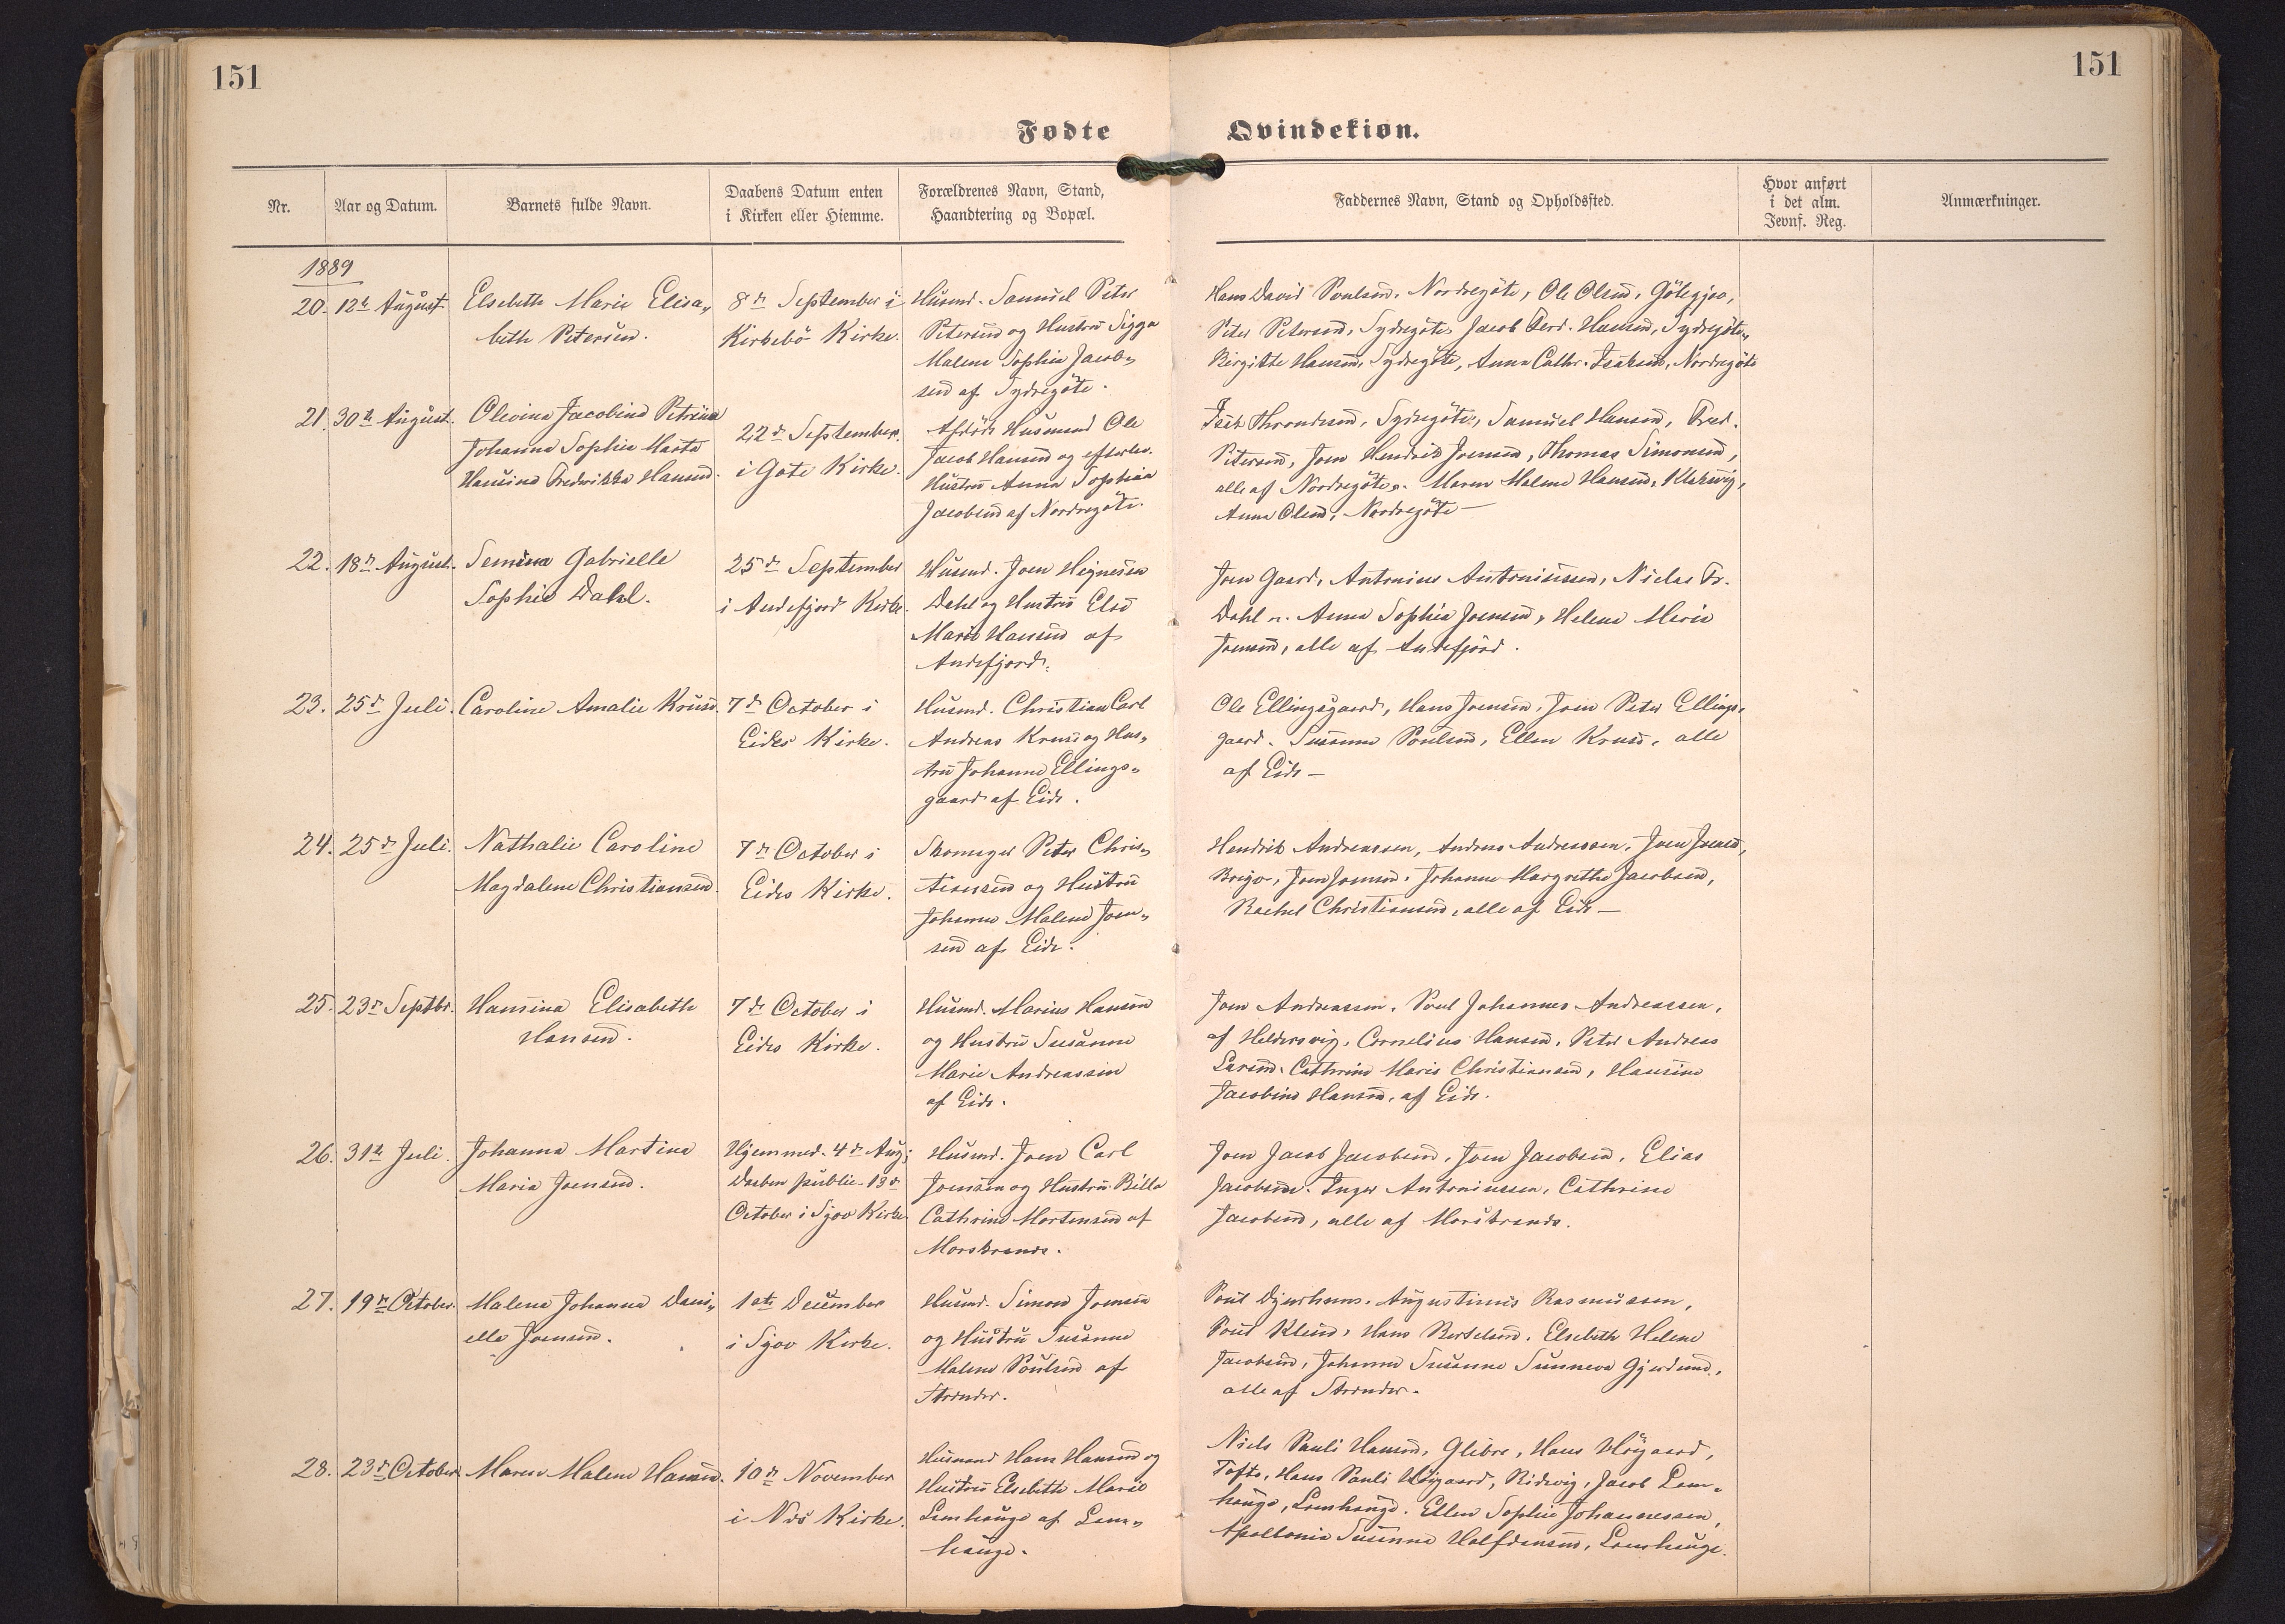 151
151
Fødte
Qvindekiøn.
Nr.
Aar og Datum.
Barnets fulde Navn.
Daabens Datum enten
i Kirken eller Hiemme.
Forældrenes Navn, Stand,
Haandtering og Bopæl.
Faddernes Navn, Stand og Opholdssted.
Hvor anført
i det alm.
Jevnf. Reg.
Anmærkninger.
1889
20. 12te August.
Elsebeth Marie Elisa„
beth Petersen.
8de September i
Kirkebö Kirke.
Husmd. Samuel Peter
Petersen og Hustru Sigga
Malene Sophie Jacob„
sen af Sydregöte.
Hans David Poulsen, Nordregöte, Ole Olsen, Götegjov,
Peter Petersen, Sydregöte, Jacob Ferd. Hansen, Sydregöte„
Birgitte Hansen, Sydregöte, Anna Cathr. Isaksen, Nordregöte
21. 30te August.
Olevina Jacobine Petrina
Johanna Sophie Marta
Hansine Fredrikka Hansen.
22de September
i Göte Kirke.
Afdöde Husmand Ole
Jacob Hansen og efterlev.
Hustru Anna Sophia
Jacobsen af Nordregöte.
Isak Throndsen, Sydregöte, Samuel Hansen, Fred.
Petersen, Joen Hendrik Joensen, Thomas Simonsen,
alle af Nordregöte. Maren Malene Hansen, Klaksvig,
Anna Olsen, Nordregöte —
22. 18de August.
Semina Gabrielle
Sophie Dahl.
25de September
i Andefjord Kirke.
Husmd. Joen Heignesen
Dahl og Hustru Else
Marie Hansen af
Andefjord.
Joen Gaard, Antonius Antoniussen, Niclas Fr.
Dahl. Anna Sophia Joensen, Helene Marie
Joensen, alle af Andefjord.
23. 25de Juli.
Caroline Amalie Kruse.
7de October i
Eides Kirke.
Husmd. Christian Carl
Andreas Kruse og Hus„
tru Johanne Ellings„
gaard af Eide.
Ole Ellingsgaard, Hans Joensen, Joen Peter Ellings„
gaard. Susanne Poulsen, Ellen Kruse, alle
af Eide —
24. 25de Juli.
Nathalie Caroline
Magdalene Christiansen.
7de October i
Eides Kirke.
Skomager Peter Chris„
tiansen og Hustru
Johanne Malene Joen„
sen af Eide.
Hendrik Andreassen, Andreas Andreassen, Joen Joensen,
Joen Joensen. Johanne Margrethe Jacobsen,
Rachel Christiansen, alle af Eide —
25. 23de Septbr.
Hansina Elisabeth
Hansen.
7de October i
Eides Kirke.
Husmd. Marius Hansen
og Hustru Susanne
Marie Andreassen
af Eide.
Joen Andreassen, Poul Johannes Andreassen,
af Heldersvig, Cornelius Hansen, Peter Andreas
Larsen. Cathrine Marie Christiansen, Hansine
Jacobine Hansen, af Eide.
26. 31te Juli.
Johanna Martina
Maria Joensen.
Hjemmed. 4de Aug;
Daaben public. 13de
October i Sjov Kirke.
Husmd. Joen Carl
Joensen og Hustru Billa
Cathrine Mortensen af
Morskranes.
Joen Jacob Jacobsen, Joen Jacobsen, Elias
Jacobsen. Inger Antoniussen, Cathrine
Jacobsen, alle af Morskranes.
27. 19de October.
Malena Johanna Dani„
ella Joensen.
1ste December
i Sjov Kirke.
Husmd. Simon Joensen
og Hustru Susanne
Malene Poulsen af
Strænder.
Poul Djurhuus, Augustinus Rasmussen,
Poul Klein, Hans Bertelsen. Elsebeth Helene
Jacobsen, Johanne Susanne Sunneva Gjerdsen,
alle af Strænder.
28. 23de October
Maren Malene Hansen.
10de November
i Næs Kirke.
Husmand Hans Hansen og
Hustru Elsebeth Marie
Lamhauge af Lam„
hauge.
Niels Pauli Hansen, Glibre, Hans Höjgaard,
Tofte, Hans Pauli Höjgaard, Ridevig, Jacob Lam„
hauge, Lamhauge. Ellen Sophie Johannessen,
Apollonia Susanne Halfdansen, Lamhauge.